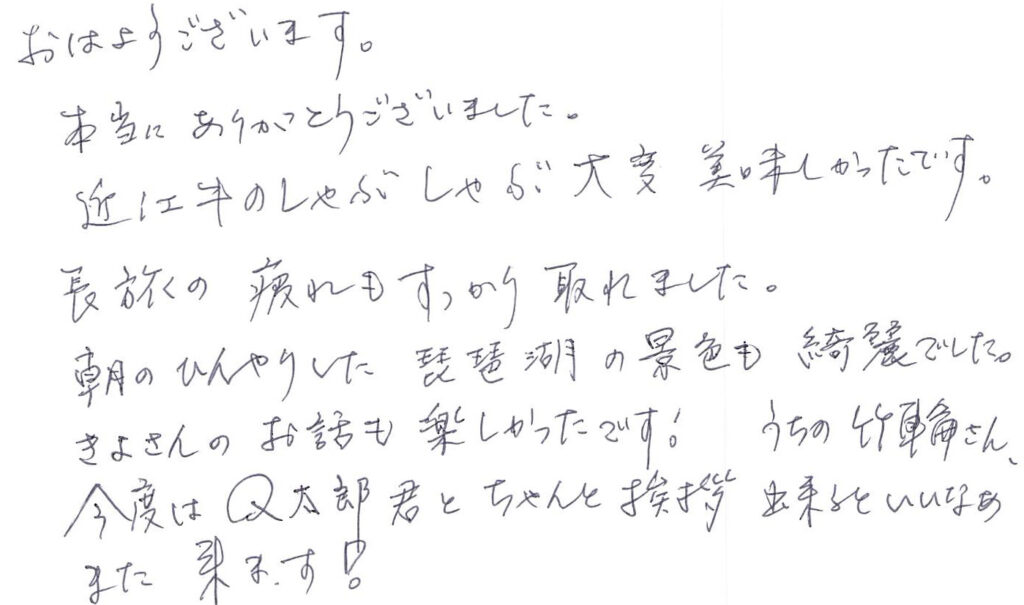 おはようございます。
本当にありがとうございました。
近江牛のしゃぶしゃぶ大変美味しかったです。
長旅の疲れもすっかり取れました。
朝のひんやりした琵琶湖の景色も綺麗でした。
きよさんのお話も楽しかったです! うちの竹輪さん、
今度はQ太郎君とちゃんと挨拶出来るといいなあ
また来ます!